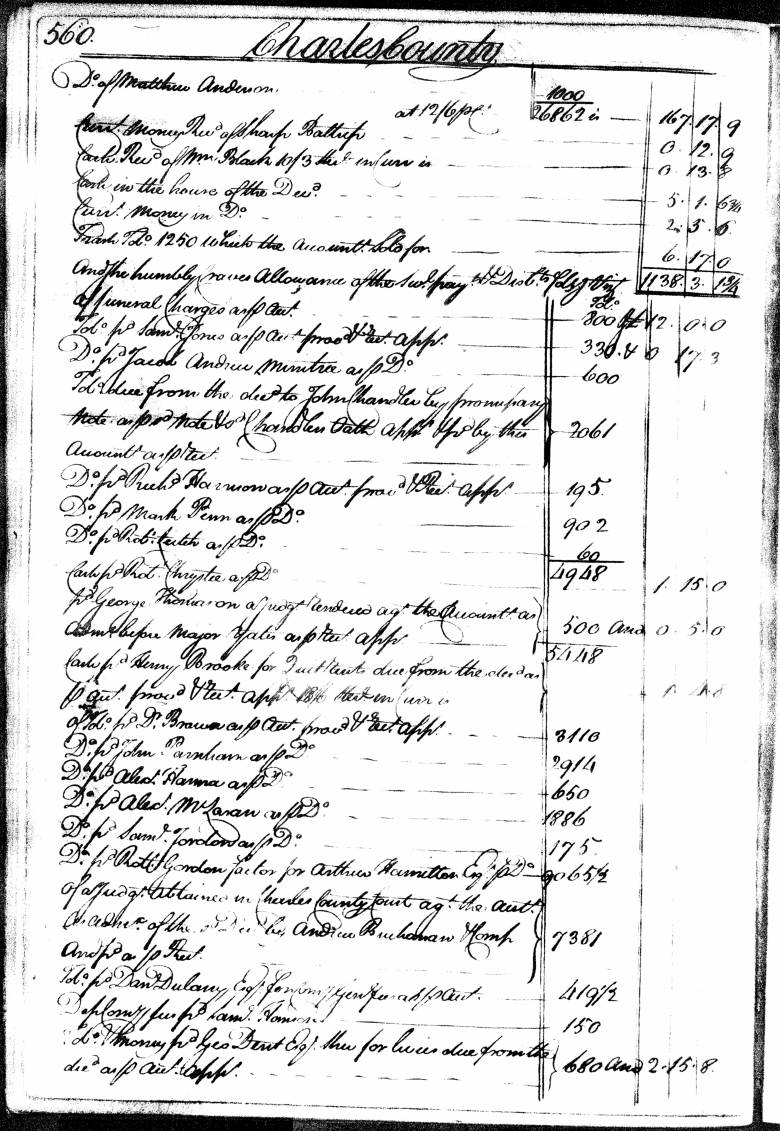 560.
Charles County
Do. of Matthew Anderson. 1000
at 12/6 pCt. 26862 is 167. 17. 9
Curt. Money Recd. of Sharp 0. 12. 9
Cash Recd. of Wm. Black 10/3 in Curr is 0. 13.
Cash in the house of the Decd. 5. 1. 6¾
Curt. Money in Do. 2. 5. 6
Trash Tobo. 1250 which the Accountt. sold for 6. 17. 0
And he humbly Craves Allowance of the following pay & Disbts. Vizt. 1138. 3. 1¾
Tbo.
Of funeral Charges as p Acct. 800 & 12. 0. 0
Tobo. pd. Saml. Jones as p Acct. provd. & Rect. appr. 330 & 0 17. 3
Do. pd. Jacob Andrew Minitree as p Do. 600
Tobo. due from the decd. to John Chandler by promissary
Note as p sd. Note & sd. Chandlers Oath appr. & pd. by this } 2061
Accountt as p Rect.
Do. pd. Richd. Harrison as p Acct. provd. & Rect. appr. 195.
Do. pd. Mark Penn as p Do. 902
Do. pd. Robt. as p Do. 60
4948
Cash pd. Robt. Chrystie as p Do. 1. 15. 0
pd. George Thomas on a Judgt. rendered agt. the Accountt. as
Admr. before Major Yates as p Rect appr. } 500 And 0. 5. 0
5448
Cash pd. Henry Brooke for Quit Rents due from the decd. as
p Acct. provd. & Rect. appr. 18/6 in Curr is
of Tobo. pd. Dr. Brown as p Acct. provd. & Rect. appr. 3110
Do. pd. John Parnham as p Do. 2914
Do. pd. Alexr. Hanna as p Do. 650
Do. pd. Alexr. McLaran as p Do. 1886
Do. pd. Saml. Jordon as p Do. 175
Do. pd. Robt. Gordon factor for Arthur Hamilton Esqr. p Do. 9065½
of a Judgt. Obtained in Charles County Court agt. the Acct.
as Admr. of the sd. Decd. by Andrew Buchanan & Comp } 7381
And pd. as p Rect.
Tobo. pd. Danl. Dulany Esqr. fees as p Acct. 419½
Dep Comry. fees pd. Saml. Hanson 150
Tobo. & Money pd. Geo Dent Esqr. for due from the
decd. as p Acct. appr. } 680 And 2. 15. 8.